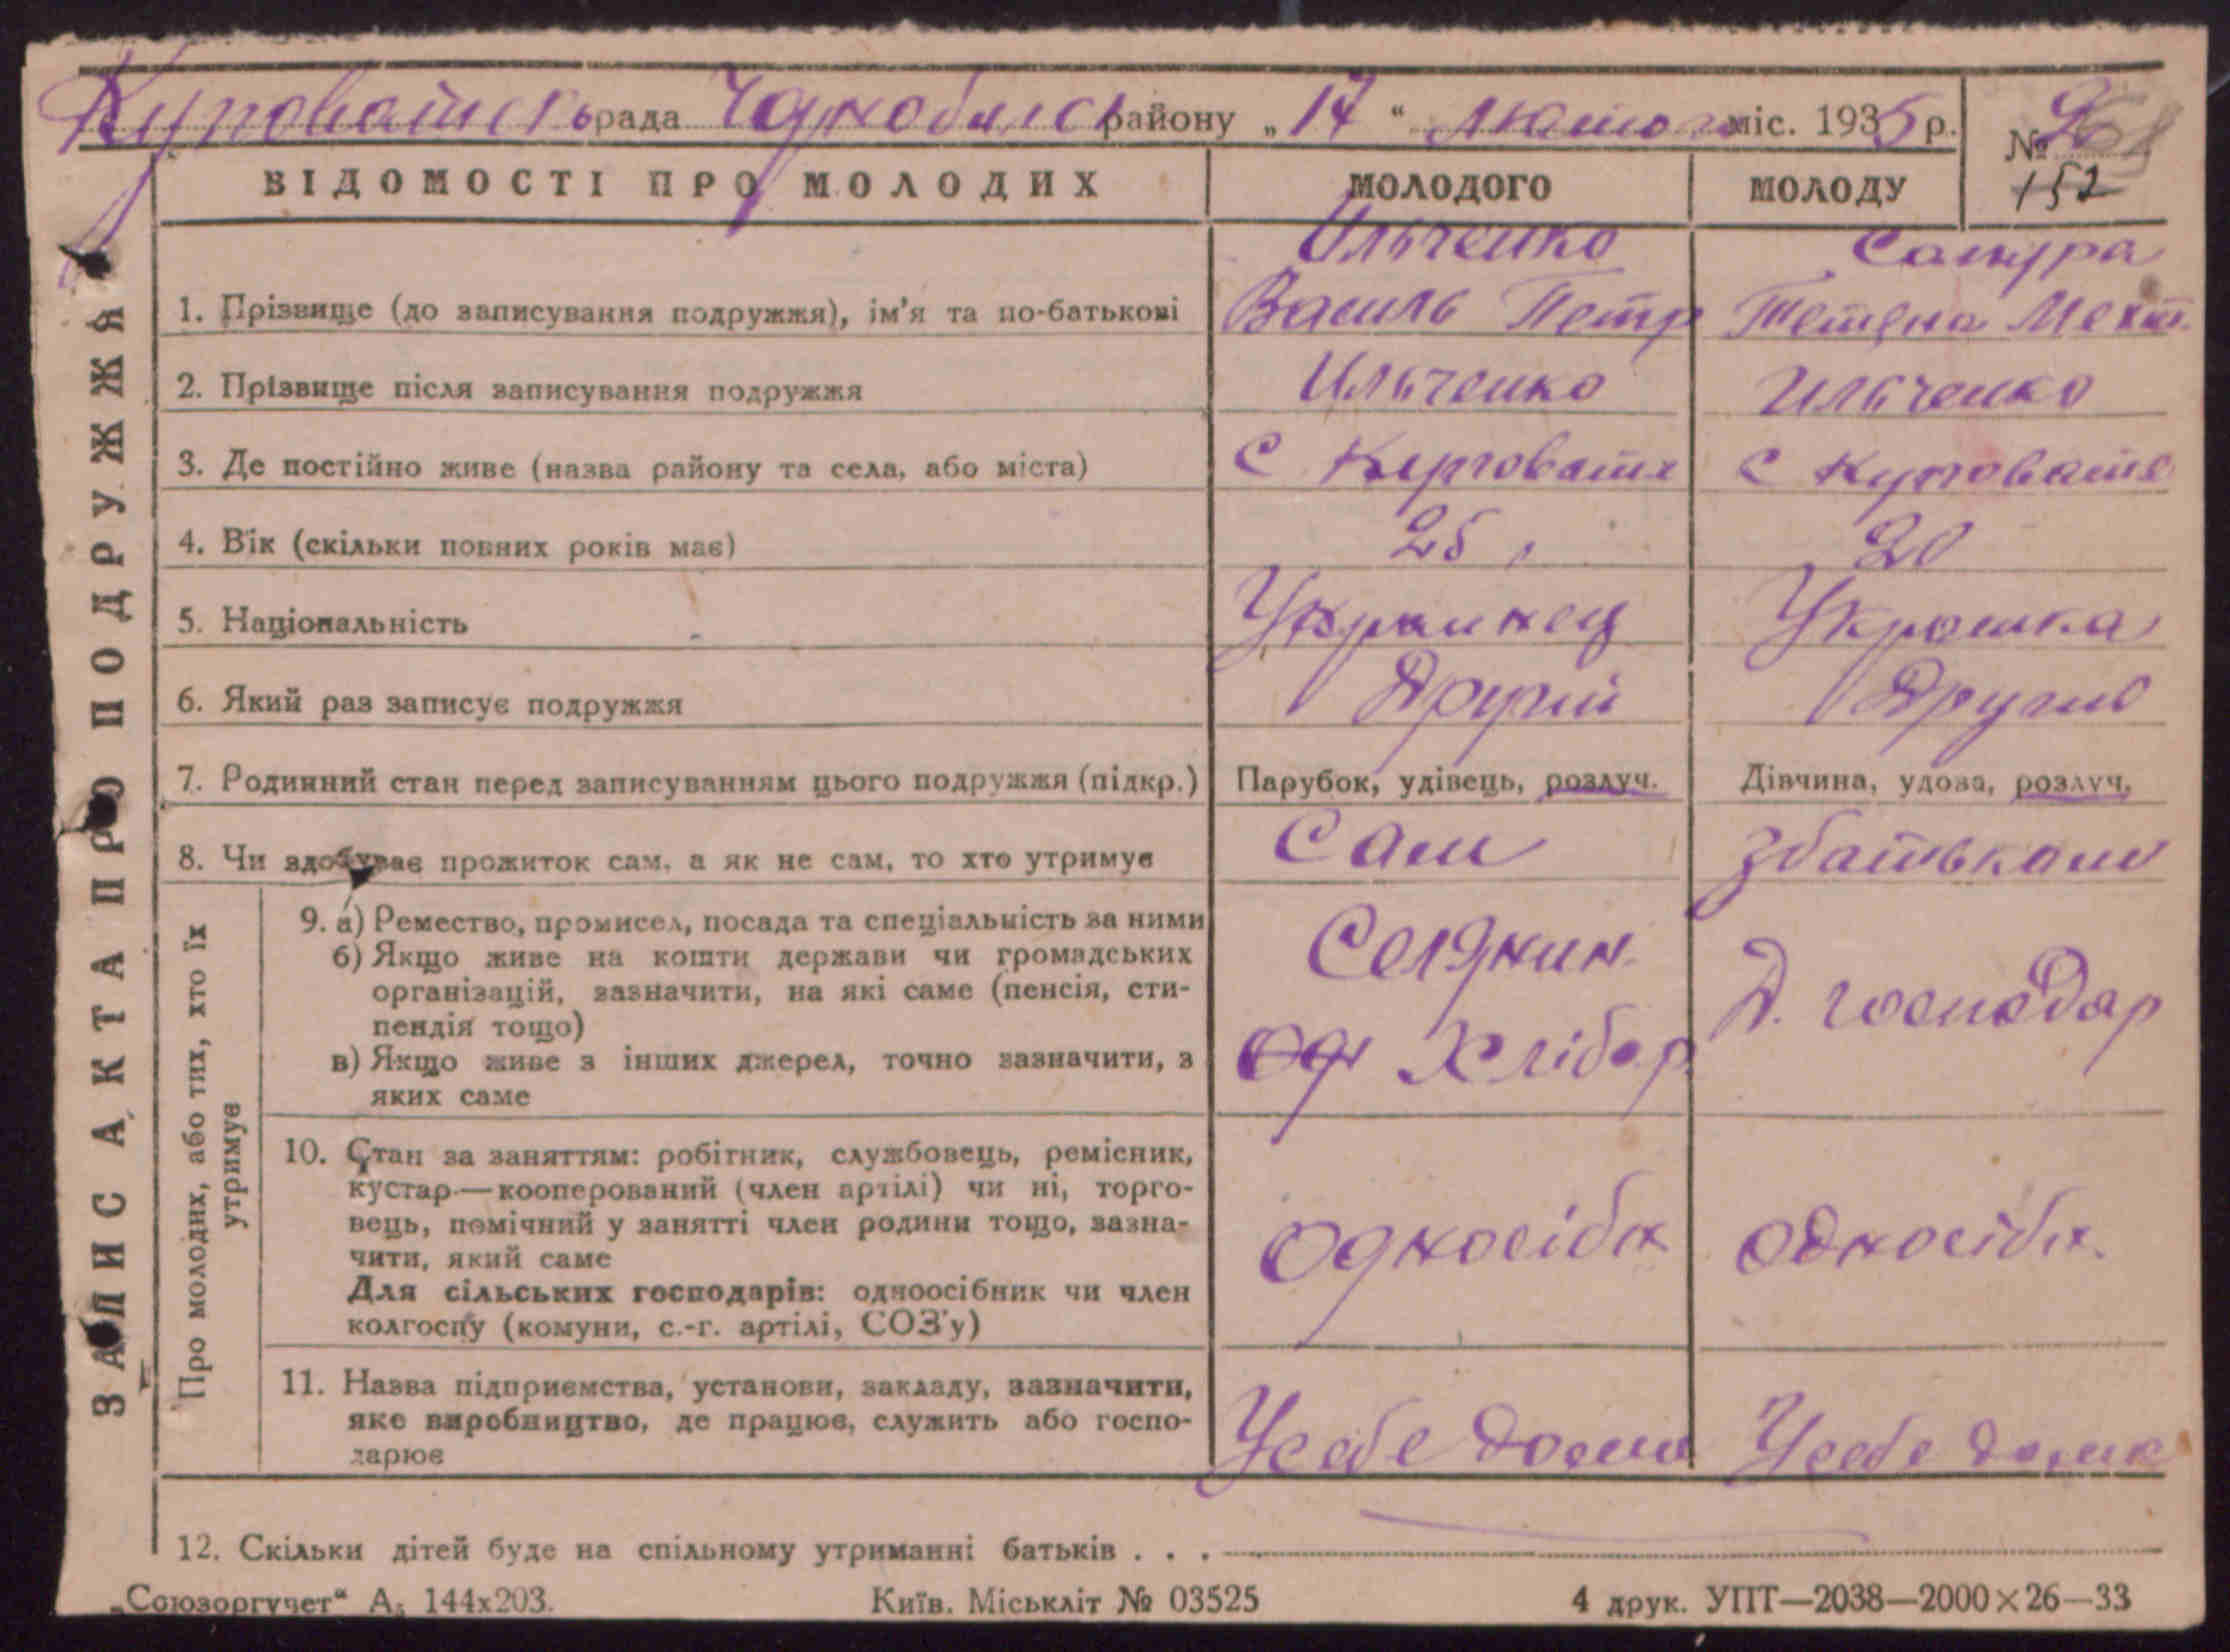 Куповатськ рада Чорнобильськ району „17“ Лютого міс. 1935 р. №
152
ВІДОМОСТІ ПРО МОЛОДИХ МОЛОДОГО МОЛОДУ
ЗАПИС АКТА ПРО ПОДРУЖЖЯ
Ильченко
1. Прізвище (до записування подружжя), ім'я та по-батькові Василь Петр Тетяна
2. Прізвище після записування подружжя Ильченко Ильченко
3. Де постійно живе (назва району та села, або міста) с Куповате с Куповате
4. Вік (скільки повних років має) 25 20
5. Національність Украинец Украинка
6. Який раз записує подружжя Другий Другий
7. Родинний стан перед записуванням цього подружжя (підкр.) Парубок, удівець, розлуч. Дівчина, удова, розлуч,
8. Чи здобуває прожиток сам, а як не сам, то хто утримує Сам з батьками
Про молодих, або тих, хто їх
утримує
9. а) Ремество, промисел, посада та спеціальність за ними
б) Якщо живе на кошти держави чи громадських
організацій, зазначити, на які саме (пенсія, сти-
пендія тощо)
в) Якщо живе з інших джерел, точно зазначити, з
яких саме
Селянин.
Хлібор
Д. господар
10. Стан за заняттям: робітник, службовець, ремісник,
кустар—кооперований (член артілі) чи ні, торго-
вець, помічний у занятті член родини тощо, зазна-
чити, який саме
Для сільських господарів: одноосібник чи член
колгоспу (комуни, с.-г. артілі, СОЗ'у)
Односібн Односібн.
11. Назва підприємства, установи, закладу, зазначити,
яке виробництво, де працює, служить або госпо-
дарює
У себе дома У себе дома
12. Скільки дітей буде на спільному утриманні батьків . . .
„Союзоргучет“ А₅ 144х203. Київ. Міськліт № 03525 4 друк. УПТ—2038—2000×26—33